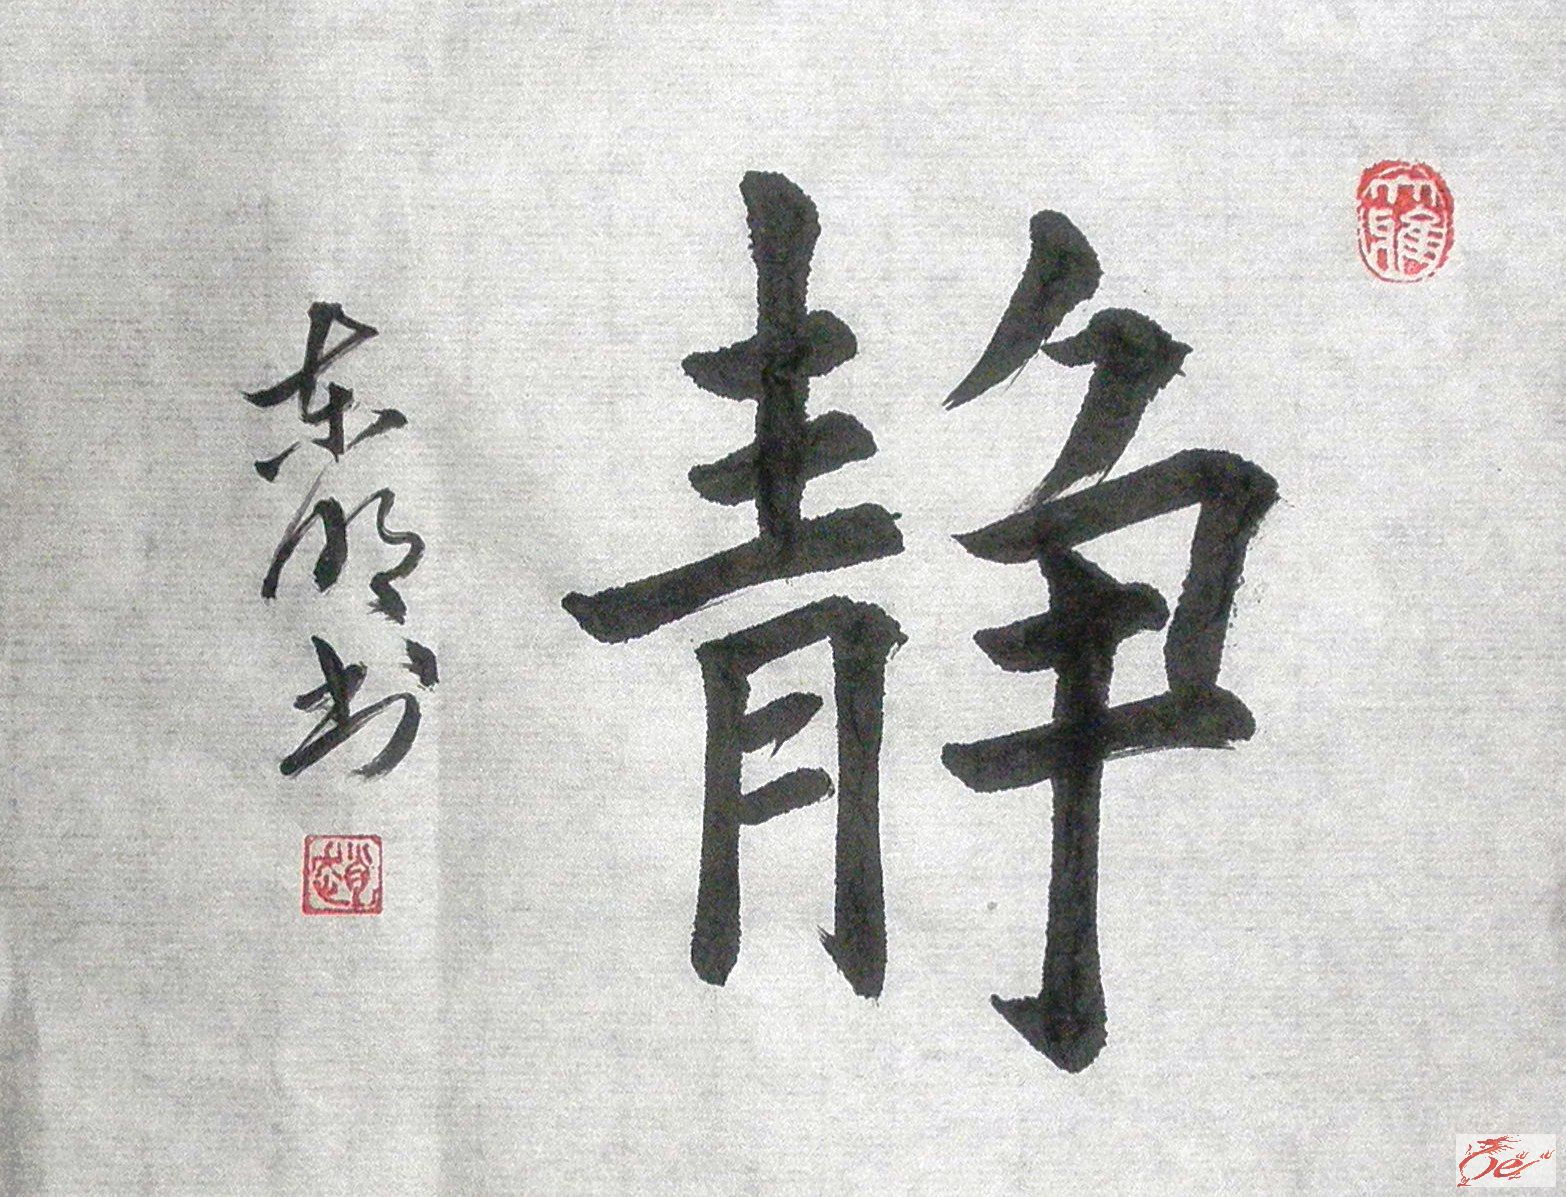 静
东明书
趙